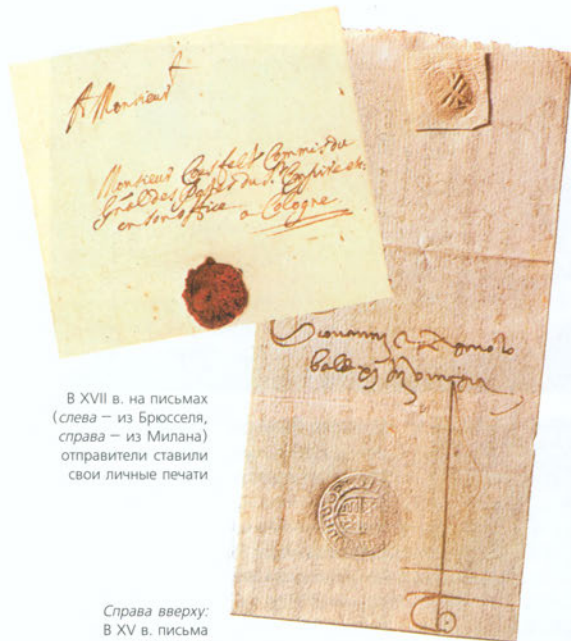 A Monsieur
Monsieur Commis du
Gñal des Postes du S. Empire etc.
en son office a Cologne
Giovanni
В XVII в. на письмах
(слева — из Брюсселя,
справа — из Милана)
отправители ставили
свои личные печати
Справа вверху:
В XV в. письма